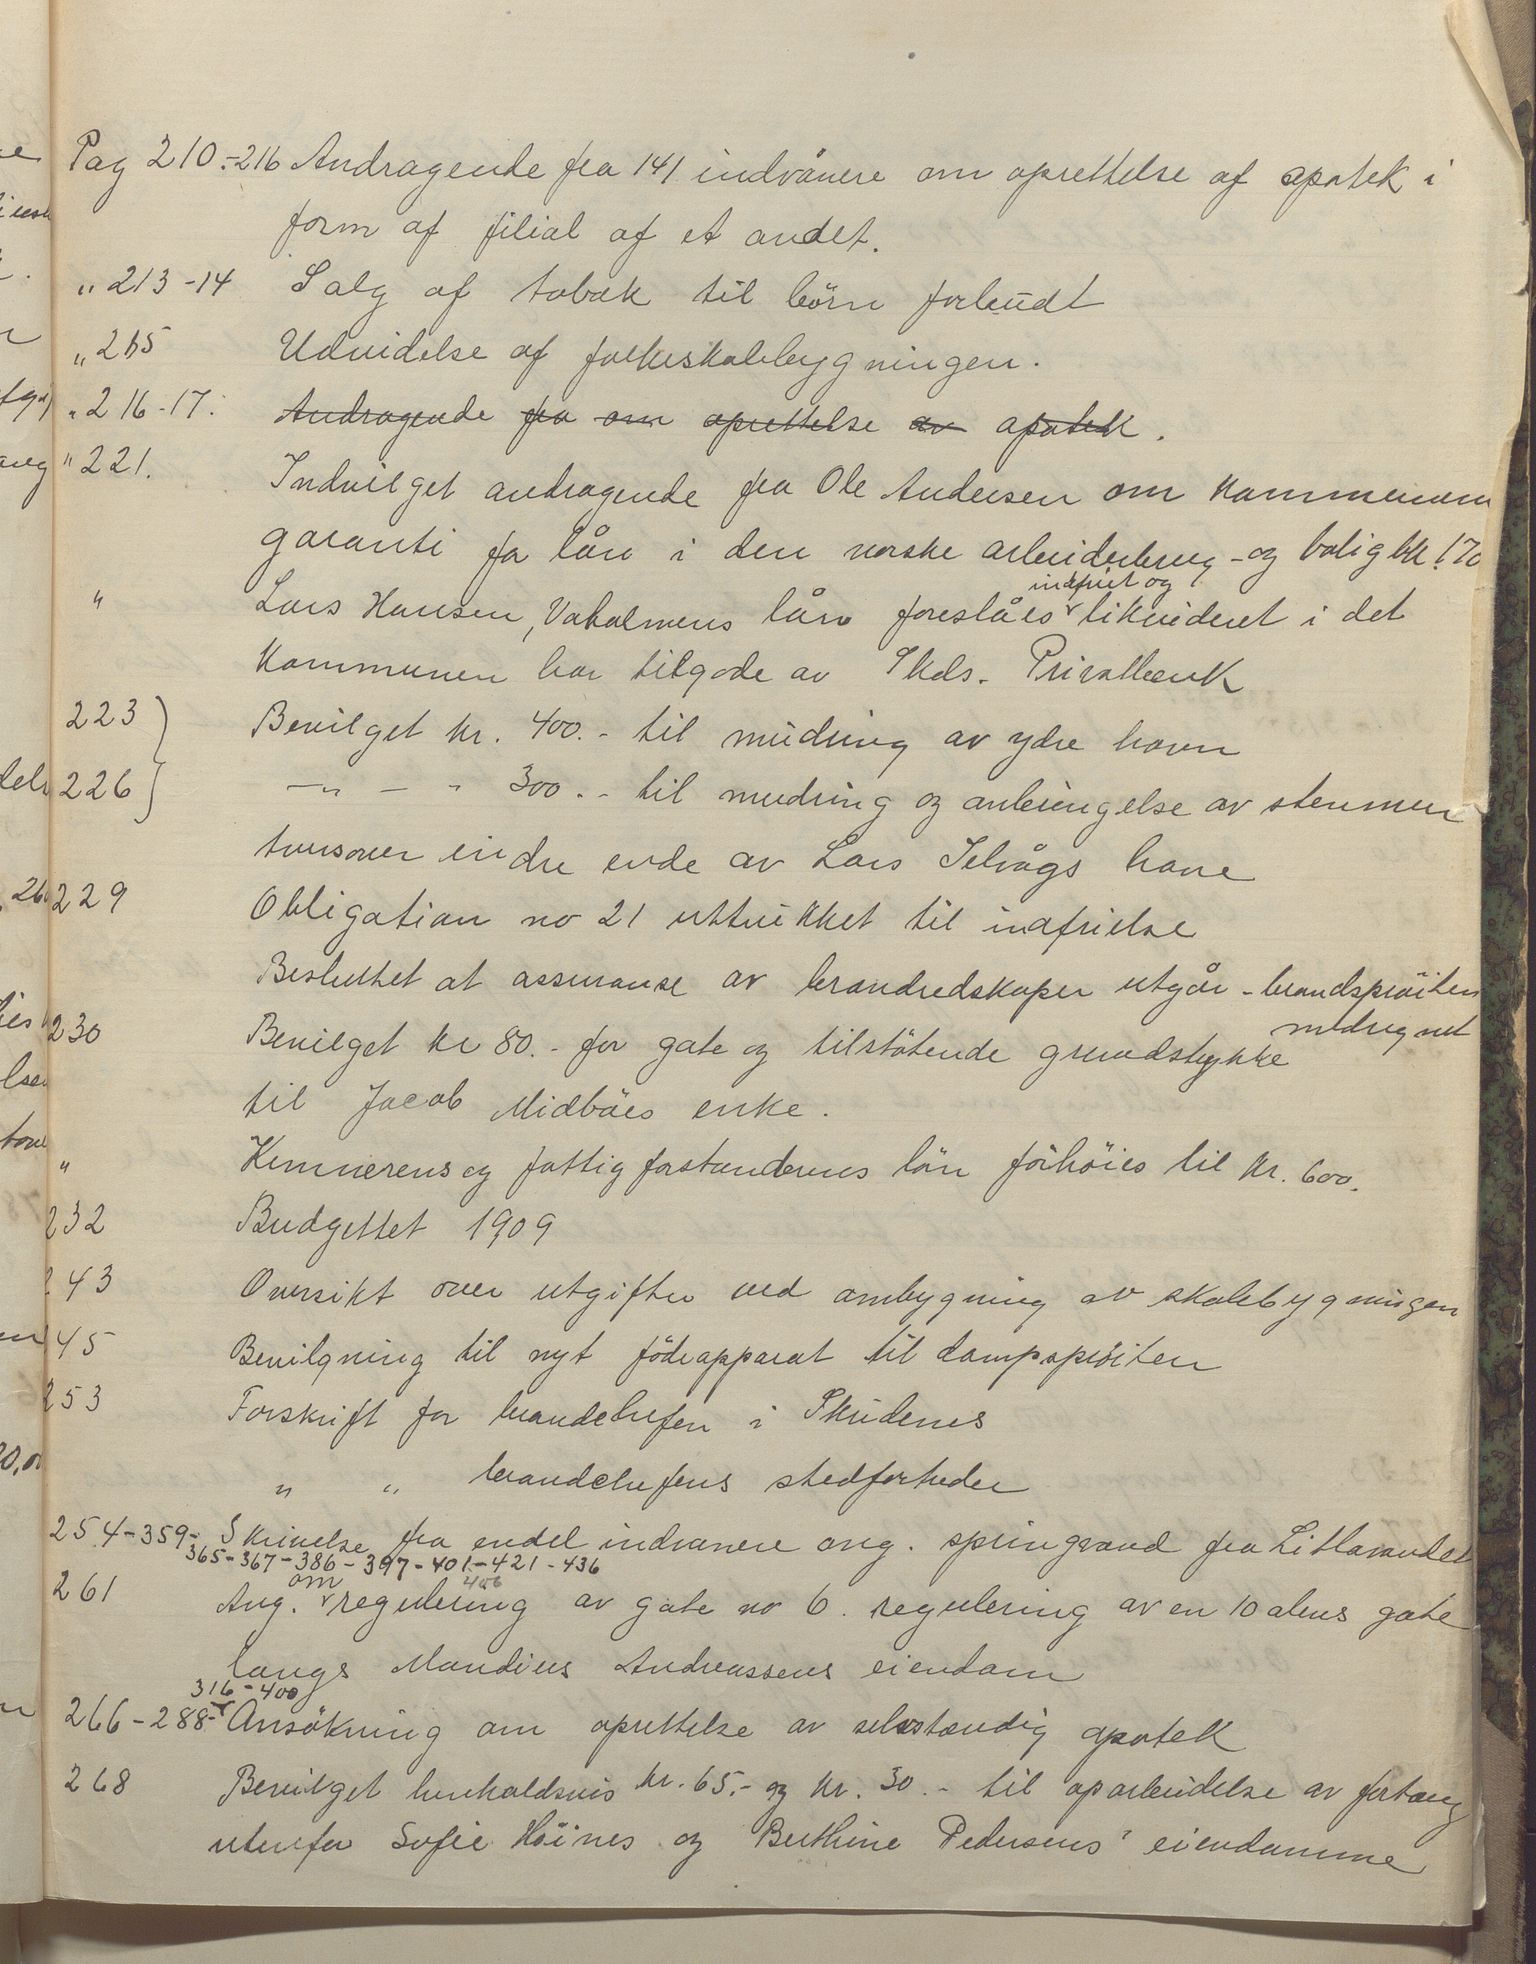 Pag 210.-216 Andragende fra 141 indvånere om oprettelse af apotek i
form af filial af et andet.
„ 213-14 Salg af tobak til börn forbudt
„ 215 Udvidelse af folkeskolebygningen.
„ 216-17. Andragende fra om oprettelse av apotek.
„ 221. Indvilget andragende fra Ole Andersen om kommunens
garanti for lån i den norske arbeiderbrug- og boligbk. 170
indfriet og
„ Lars Hansen, Vaholmens lån foreslåes likvideret i det
Kommunen har tilgode av Skds. Privatbank
223 Bevilget kr. 400.- til mudring av ydre havn
226 —„— „ 300.- til mudring og anbringelse av stenmur
tversover indre ende av Lars Selvågs have
229 Obligation no 21 uttrukket til indfrielse
Besluttet at assuranse av brandredskaper utgår - brandspröiten
medregnet
230 Bevilget kr 80.- for gate og tilstötende grundstykke
til Jacob Midböes enke.
„ Kemnerens og fattigforstanderens lön forhöies til kr. 600.
232 Budgettet 1909
243 Oversikt over utgifter ved ombygning av skolebygningen
245 Bevilgning til nyt födeapparat til dampspröiten
253 Forskrift for brandchefen i Skudenes
„ „ brandchefens stedfortreder
254-359- Skrivelse fra endel indvanere ang. springvand fra Litlavandet
365-367-386-397-401-421-436
406
om
261 Ang. regulering av gate no 6. regulering av en 10 alens gate
langs Mandius Andreassens eiendom
316-400
266-288- Ansökning om oprettelse av selvstændig apotek
268 Bevilget henholdsvis kr. 65.- og kr. 30.- til oparbeidelse av fortaug
utenfor Sofie Höines og Berthine Pedersens' eiendomme